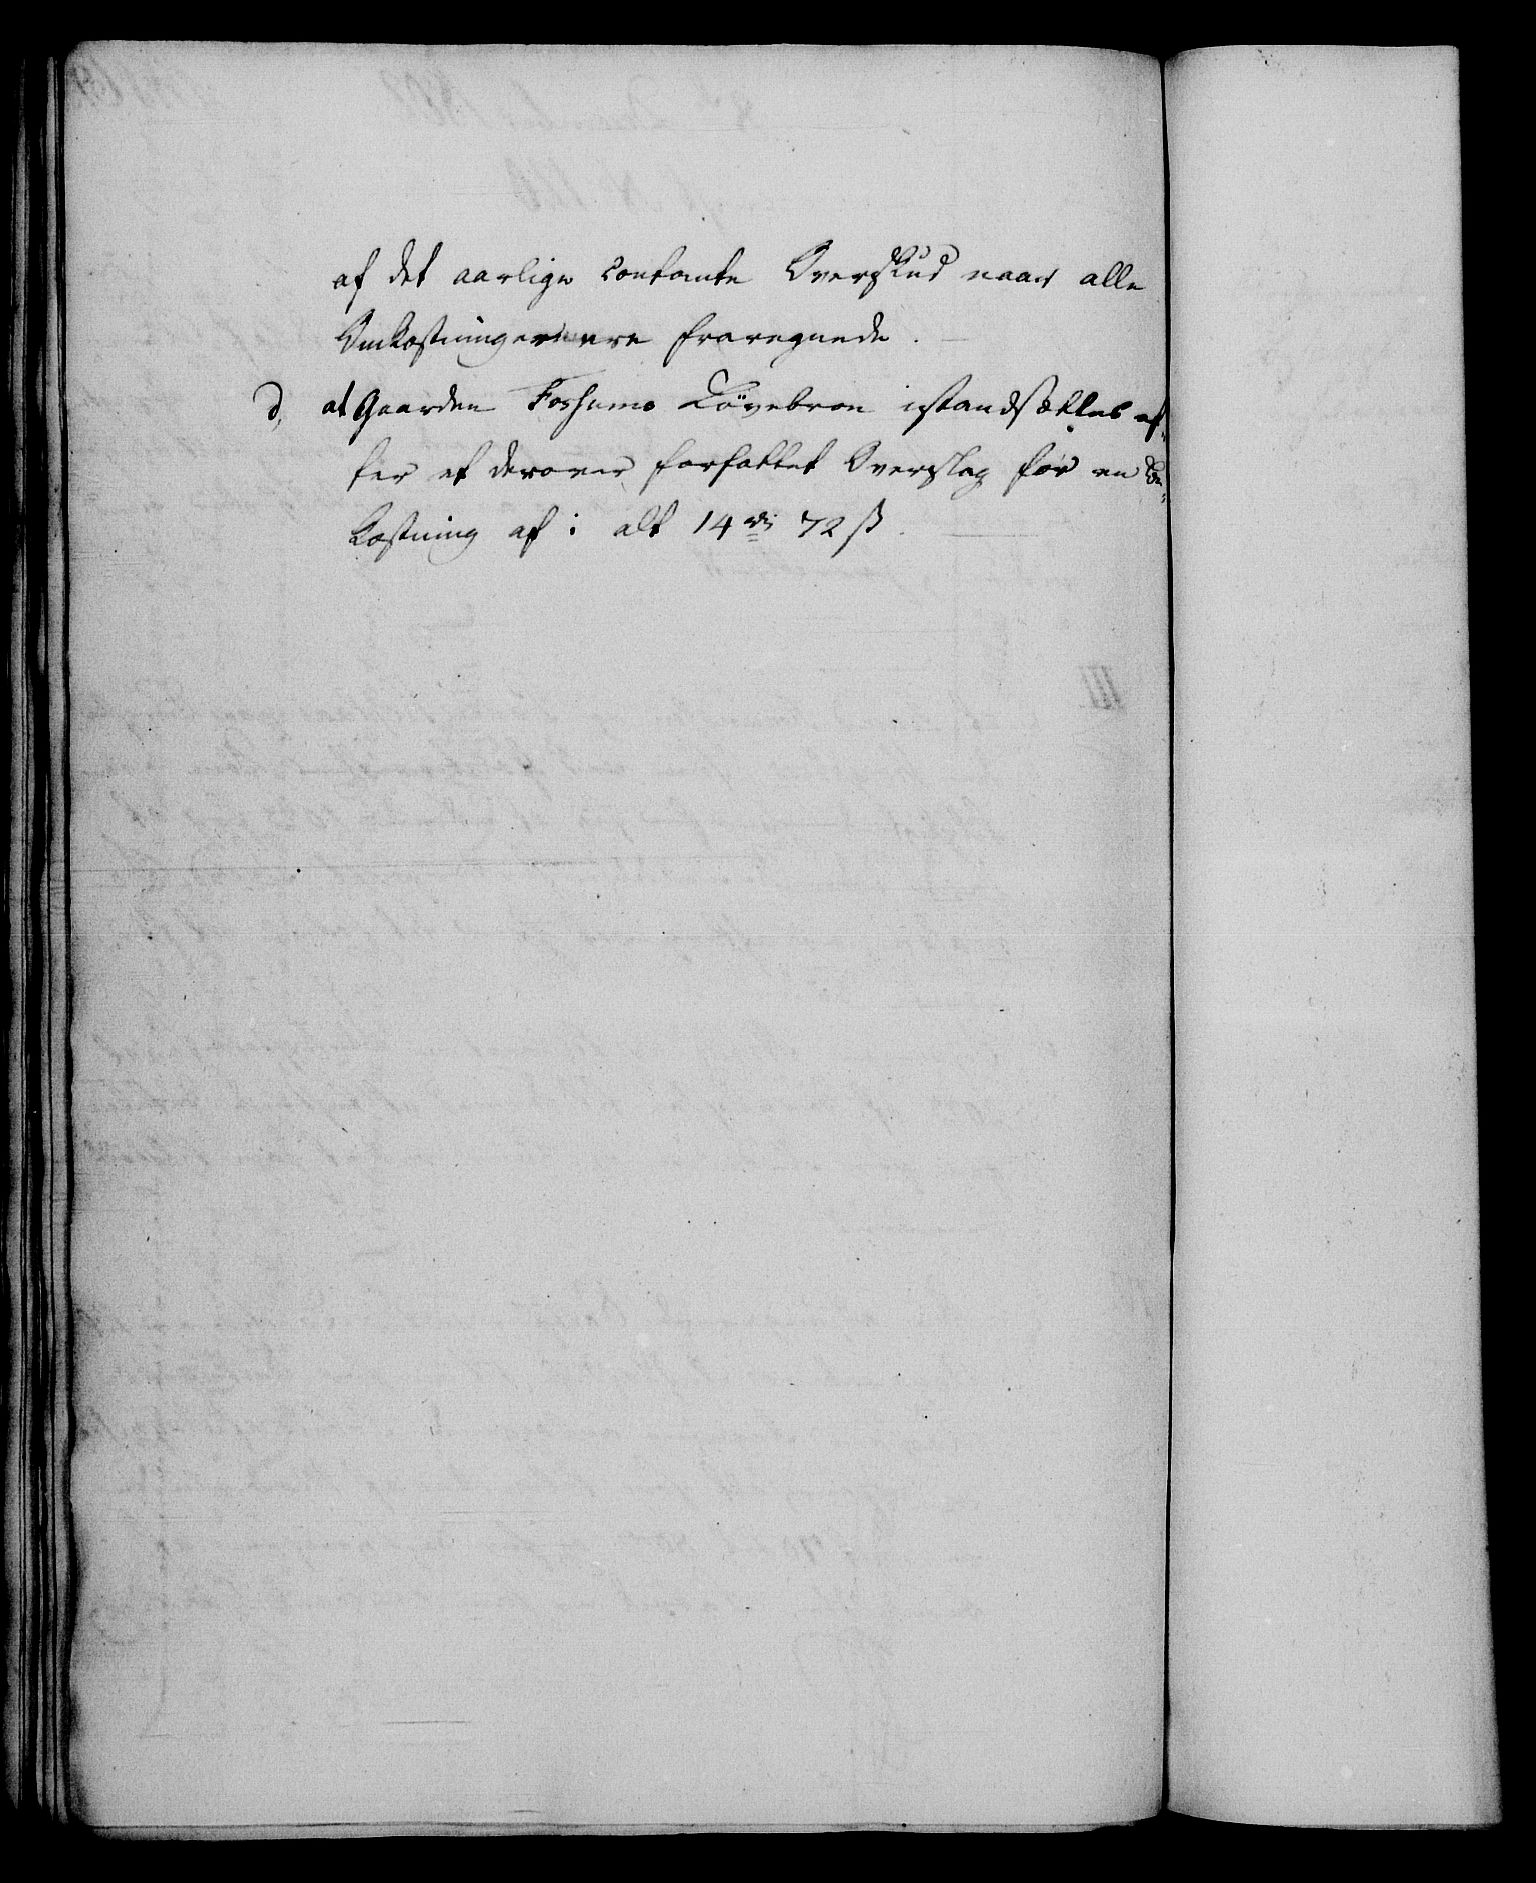 af det aarlige contante Overskud naar alle
Omkostninger ere fraregnede.
d, at Gaarden Fossums Løvebroe istandsættes ef-
ter et derover forfattet Overslag for en Be-
kostning af i alt 14 rdr 72 ß.